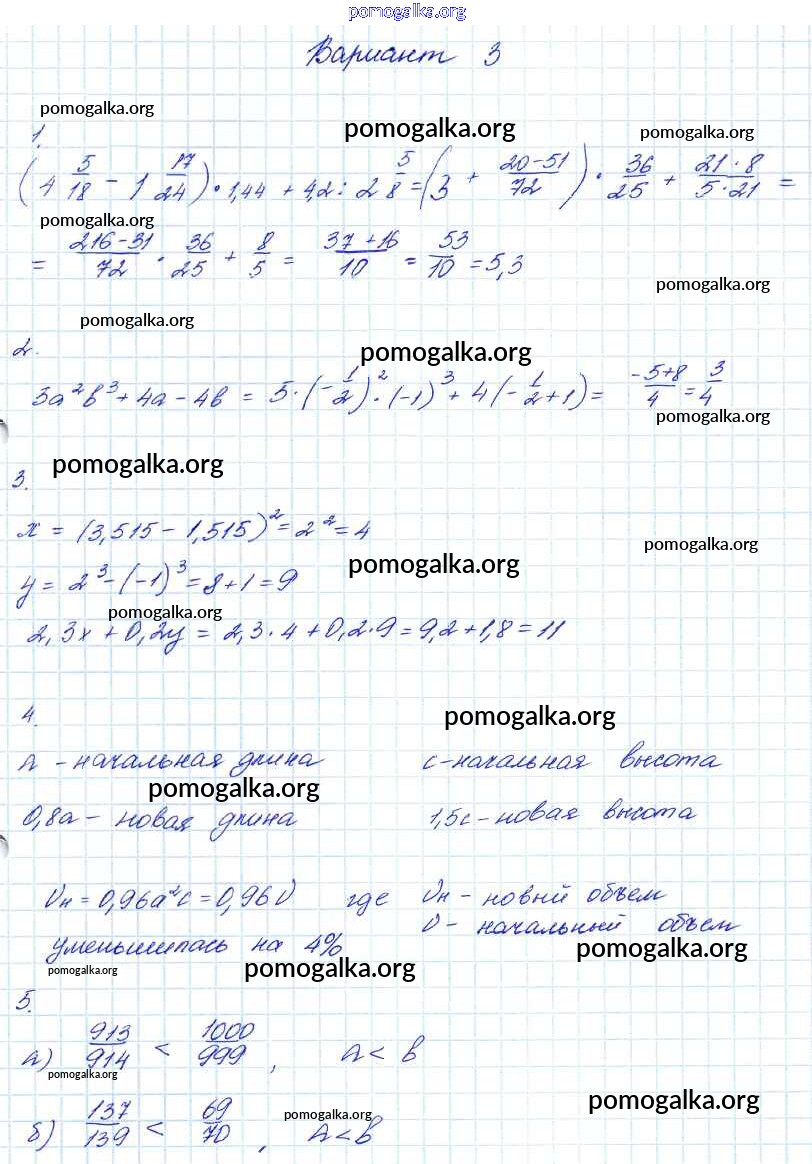 pomogalka.org
Вариант 3
pomogalka.org
pomogalka.org
pomogalka.org
1.
(4 5/18 - 1 17/24) · 1,44 + 4,2 : 2 5/8 = (3 + (20-51)/72) · 36/25 + (21·8)/(5·21) =
pomogalka.org
= (216-31)/72 · 36/25 + 8/5 = (37+16)/10 = 53/10 = 5,3
pomogalka.org
pomogalka.org
2.
pomogalka.org
5a²b³ + 4a - 4b = 5·(-1/2)²·(-1)³ + 4(-1/2+1) = (-5+8)/4 = 3/4
pomogalka.org
3.
pomogalka.org
x = (3,515 - 1,515)² = 2² = 4
pomogalka.org
pomogalka.org
y = 2³ - (-1)³ = 8 + 1 = 9
pomogalka.org
2,3x + 0,2y = 2,3·4 + 0,2·9 = 9,2 + 1,8 = 11
4.
pomogalka.org
a - начальная длина c - начальная высота
pomogalka.org
0,8a - новая длина 1,5c - новая высота
Vн = 0,96a²c = 0,96V где Vн - новый объем
V - начальный объем
уменьшилась на 4%
pomogalka.org
pomogalka.org
pomogalka.org
5.
а) 913/914 < 1000/999, a < b
pomogalka.org
pomogalka.org
pomogalka.org
б) 137/139 < 69/70, a < b